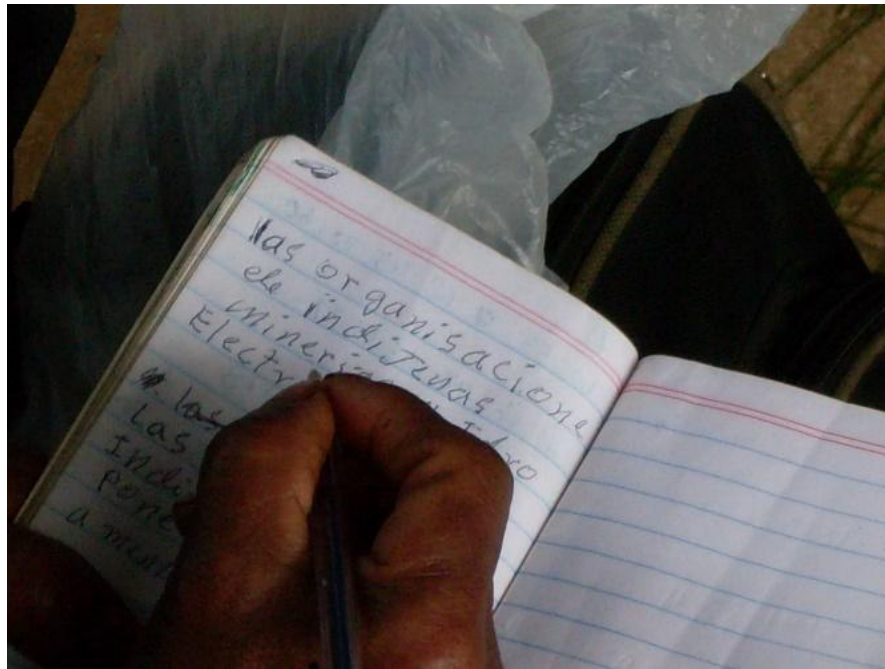 las organisacione
de indijenas
mineria idro
Electr
las
Las
Indi
Pone
a men